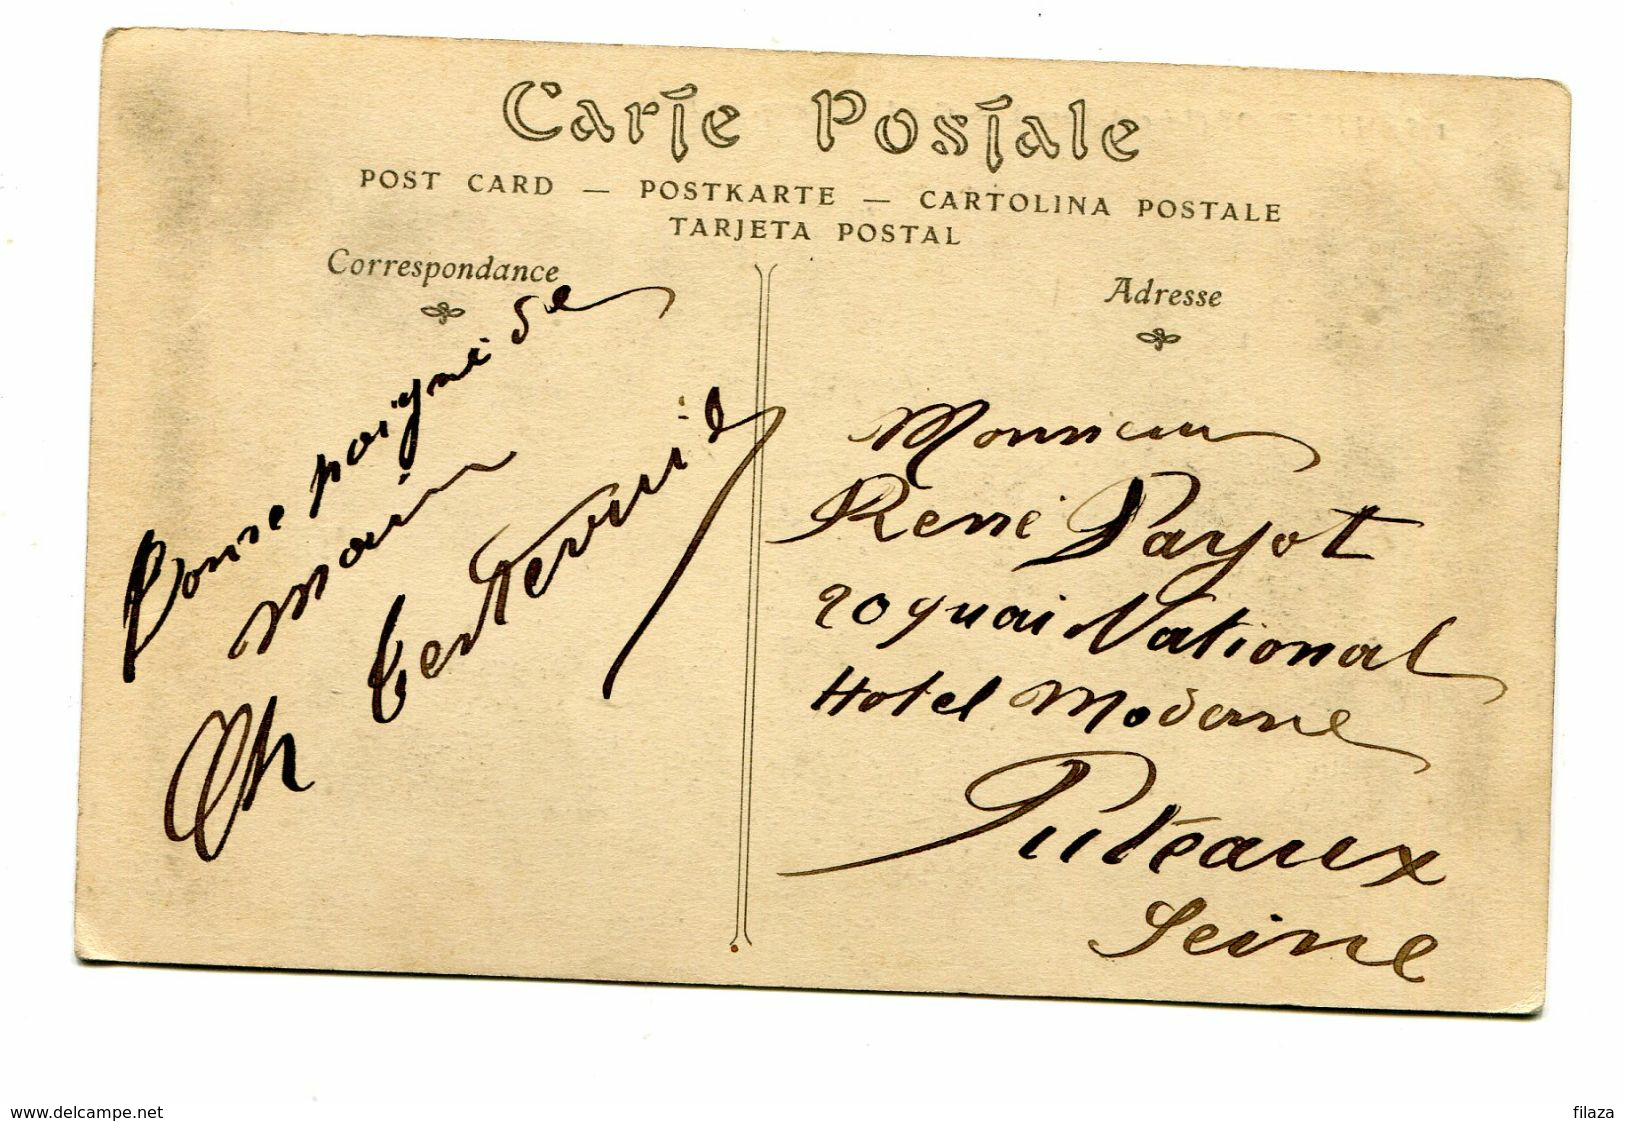 Carte Postale
POST CARD — POSTKARTE — CARTOLINA POSTALE
TARJETA POSTAL
Correspondance
Adresse
Bonne poigné de
main
Ch
Monsieur
René Payot
20 quai National
Hotel Moderne
Putéaux
Seine
www.delcampe.net
filaza